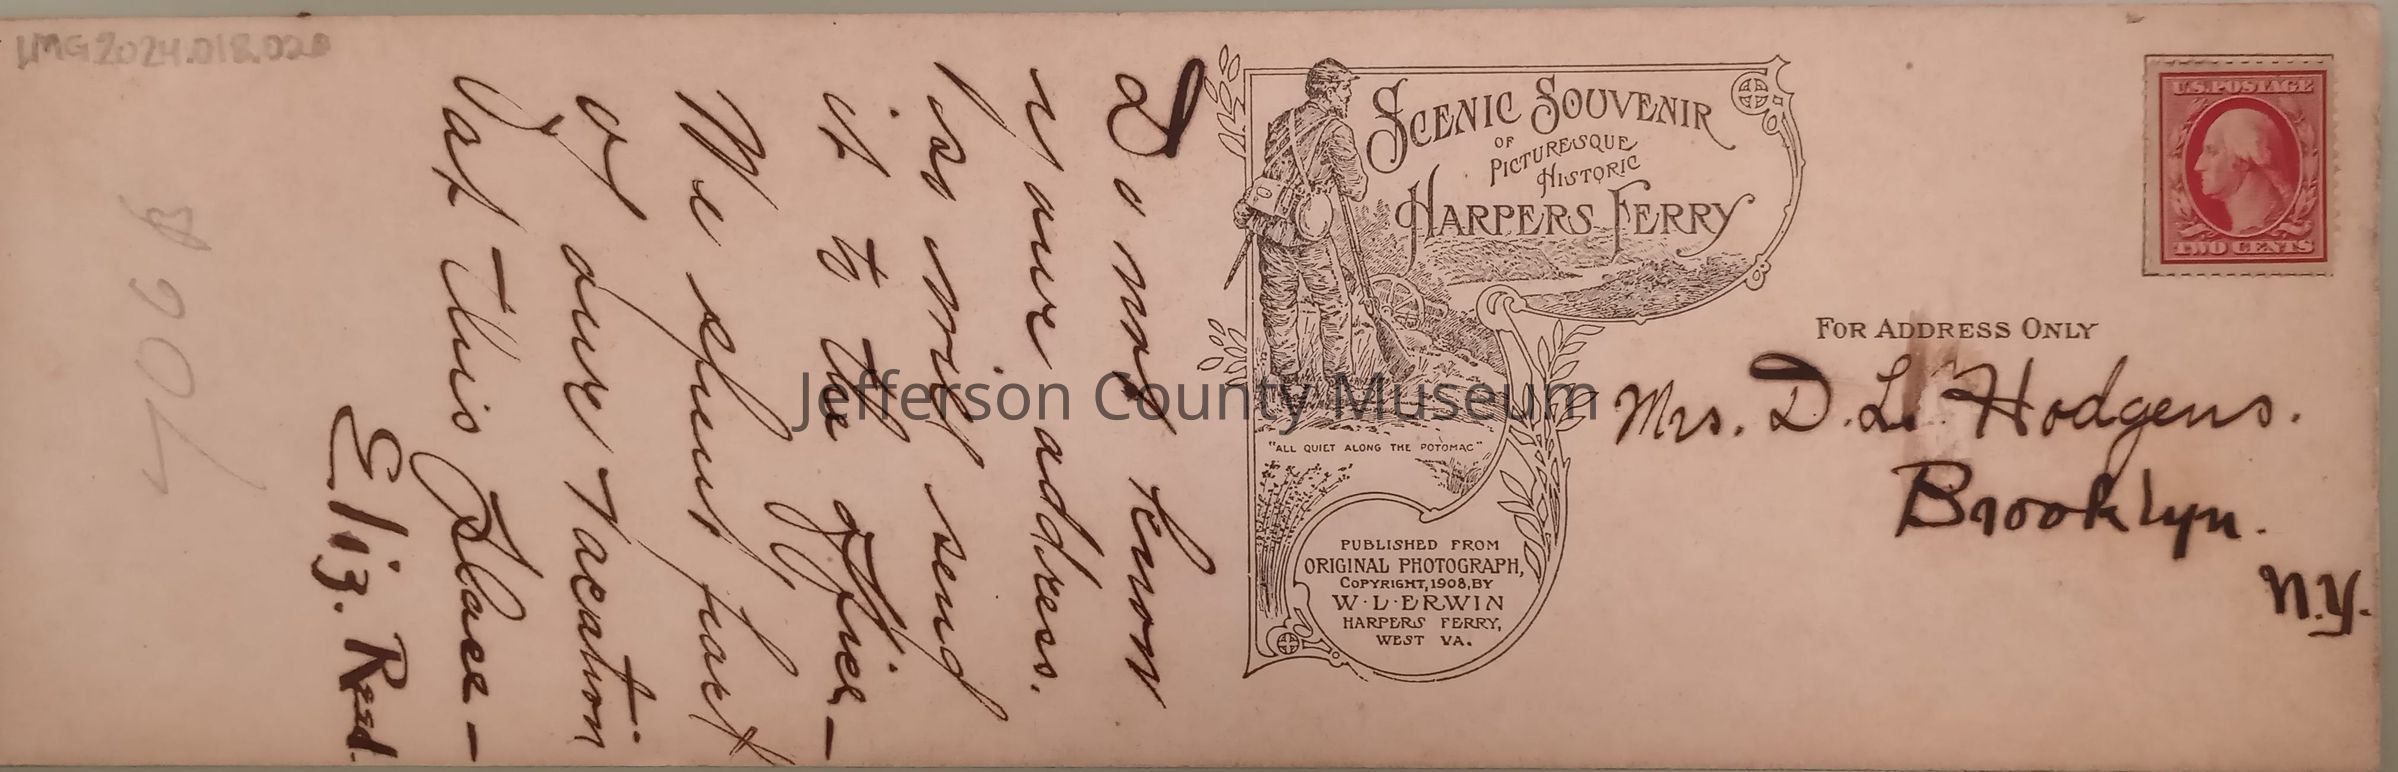 LMG2024.018.020
Do not know
your address.
so will send
it to the office—
We spent part
of our vacation
at this place—
Eliz. Reed.
SCENIC SOUVENIR
OF
PICTURESQUE
HISTORIC
HARPERS FERRY
"ALL QUIET ALONG THE POTOMAC"
PUBLISHED FROM
ORIGINAL PHOTOGRAPH,
COPYRIGHT, 1908, BY
W·L·ERWIN
HARPERS FERRY,
WEST VA.
U.S. POSTAGE
TWO CENTS
FOR ADDRESS ONLY
Mrs. D. L. Hodgens.
Brooklyn.
N.Y.
Jefferson County Museum